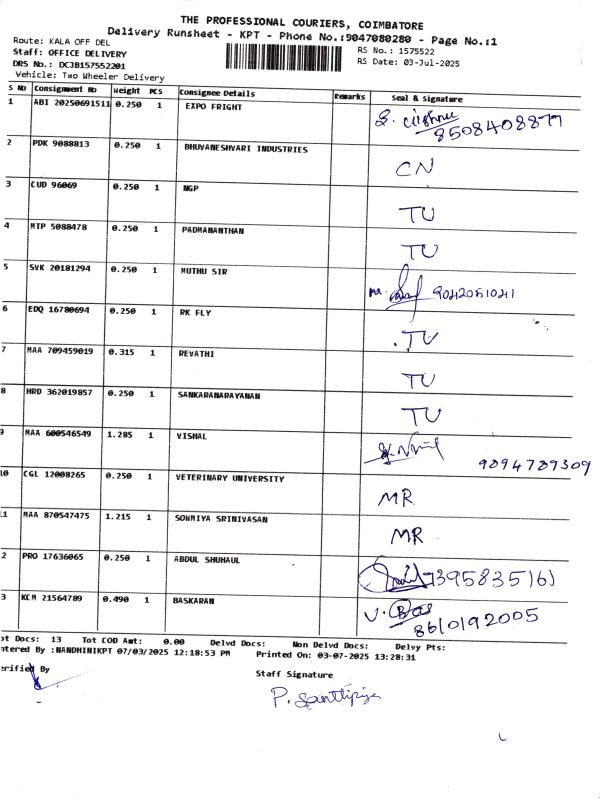 THE PROFESSIONAL COURIERS, COIMBATORE
Delivery Runsheet - KPT - Phone No.:9047080280 - Page No.:1
Route: KALA OFF DEL
RS No.: 1575522
Staff: OFFICE DELIVERY
RS Date: 03-Jul-2025
DRS No.: DCJB157552201
Vehicle: Two Wheeler Delivery
S No Consignment No Weight PCS Consignee Details Remarks Seal & Signature
1 ABI 20250691511 0.250 1 EXPO FRIGHT
8508408877
2 PDK 9088813 0.250 1 BHUVANESHVARI INDUSTRIES CN
3 CUD 96069 0.250 1 NGP TU
4 MTP 5088478 0.250 1 PADMANANTHAN TU
5 SVK 20181294 0.250 1 MUTHU SIR
6 EDQ 16780694 0.250 1 RK FLY TU
7 MAA 709459019 0.315 1 REVATHI TU
8 HRD 362019857 0.250 1 SANKARANARAYANAN TU
9 MAA 600546549 1.285 1 VISHAL
9894789309
10 CGL 12008265 0.250 1 VETERINARY UNIVERSITY MR
11 MAA 870547475 1.215 1 SOWMIYA SRINIVASAN MR
2 PRO 17636065 0.250 1 ABDUL SHUHAUL 7395835161
3 KCM 21564789 0.490 1 BASKARAN
8610192005
ot Docs: 13 Tot COD Amt: 0.00 Delvd Docs: Non Delvd Docs: Delvy Pts:
ntered By :NANDHINIKPT 07/03/2025 12:18:53 PM Printed On: 03-07-2025 13:28:31
erified By
Staff Signature
P. Santhiya